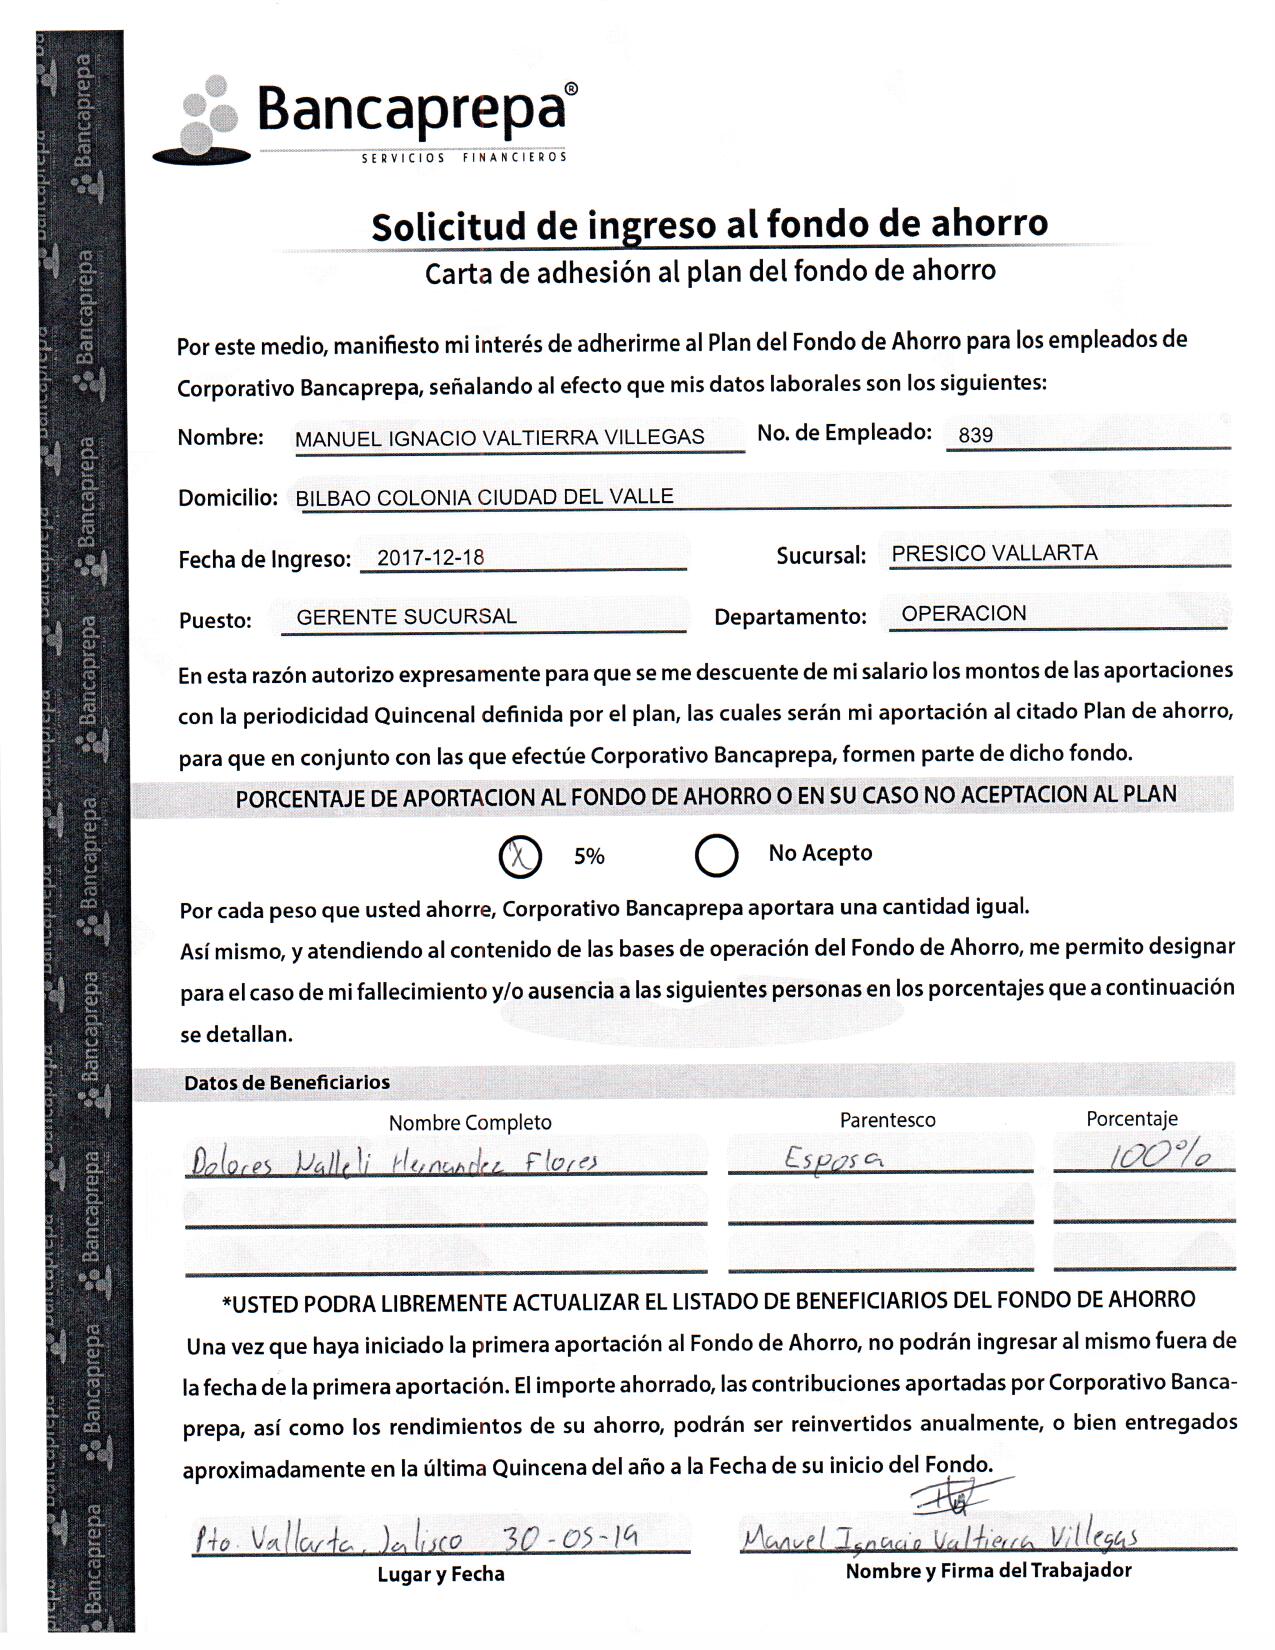 Bancaprepa®
SERVICIOS FINANCIEROS
Solicitud de ingreso al fondo de ahorro
Carta de adhesión al plan del fondo de ahorro
Por este medio, manifiesto mi interés de adherirme al Plan del Fondo de Ahorro para los empleados de
Corporativo Bancaprepa, señalando al efecto que mis datos laborales son los siguientes:
Nombre: MANUEL IGNACIO VALTIERRA VILLEGAS No. de Empleado: 839
Domicilio: BILBAO COLONIA CIUDAD DEL VALLE
Fecha de Ingreso: 2017-12-18 Sucursal: PRESICO VALLARTA
Puesto: GERENTE SUCURSAL Departamento: OPERACION
En esta razón autorizo expresamente para que se me descuente de mi salario los montos de las aportaciones
con la periodicidad Quincenal definida por el plan, las cuales serán mi aportación al citado Plan de ahorro,
para que en conjunto con las que efectúe Corporativo Bancaprepa, formen parte de dicho fondo.
PORCENTAJE DE APORTACION AL FONDO DE AHORRO O EN SU CASO NO ACEPTACION AL PLAN
X 5% No Acepto
Por cada peso que usted ahorre, Corporativo Bancaprepa aportara una cantidad igual.
Así mismo, y atendiendo al contenido de las bases de operación del Fondo de Ahorro, me permito designar
para el caso de mi fallecimiento y/o ausencia a las siguientes personas en los porcentajes que a continuación
se detallan.
Datos de Beneficiarios
Nombre Completo Parentesco Porcentaje
Dolores Nalleli Hernandez Flores Esposa 100%
*USTED PODRA LIBREMENTE ACTUALIZAR EL LISTADO DE BENEFICIARIOS DEL FONDO DE AHORRO
Una vez que haya iniciado la primera aportación al Fondo de Ahorro, no podrán ingresar al mismo fuera de
la fecha de la primera aportación. El importe ahorrado, las contribuciones aportadas por Corporativo Banca-
prepa, así como los rendimientos de su ahorro, podrán ser reinvertidos anualmente, o bien entregados
aproximadamente en la última Quincena del año a la Fecha de su inicio del Fondo.
Pto. Vallarta, Jalisco 30-05-19 Manuel Ignacio Valtierra Villegas
Lugar y Fecha Nombre y Firma del Trabajador